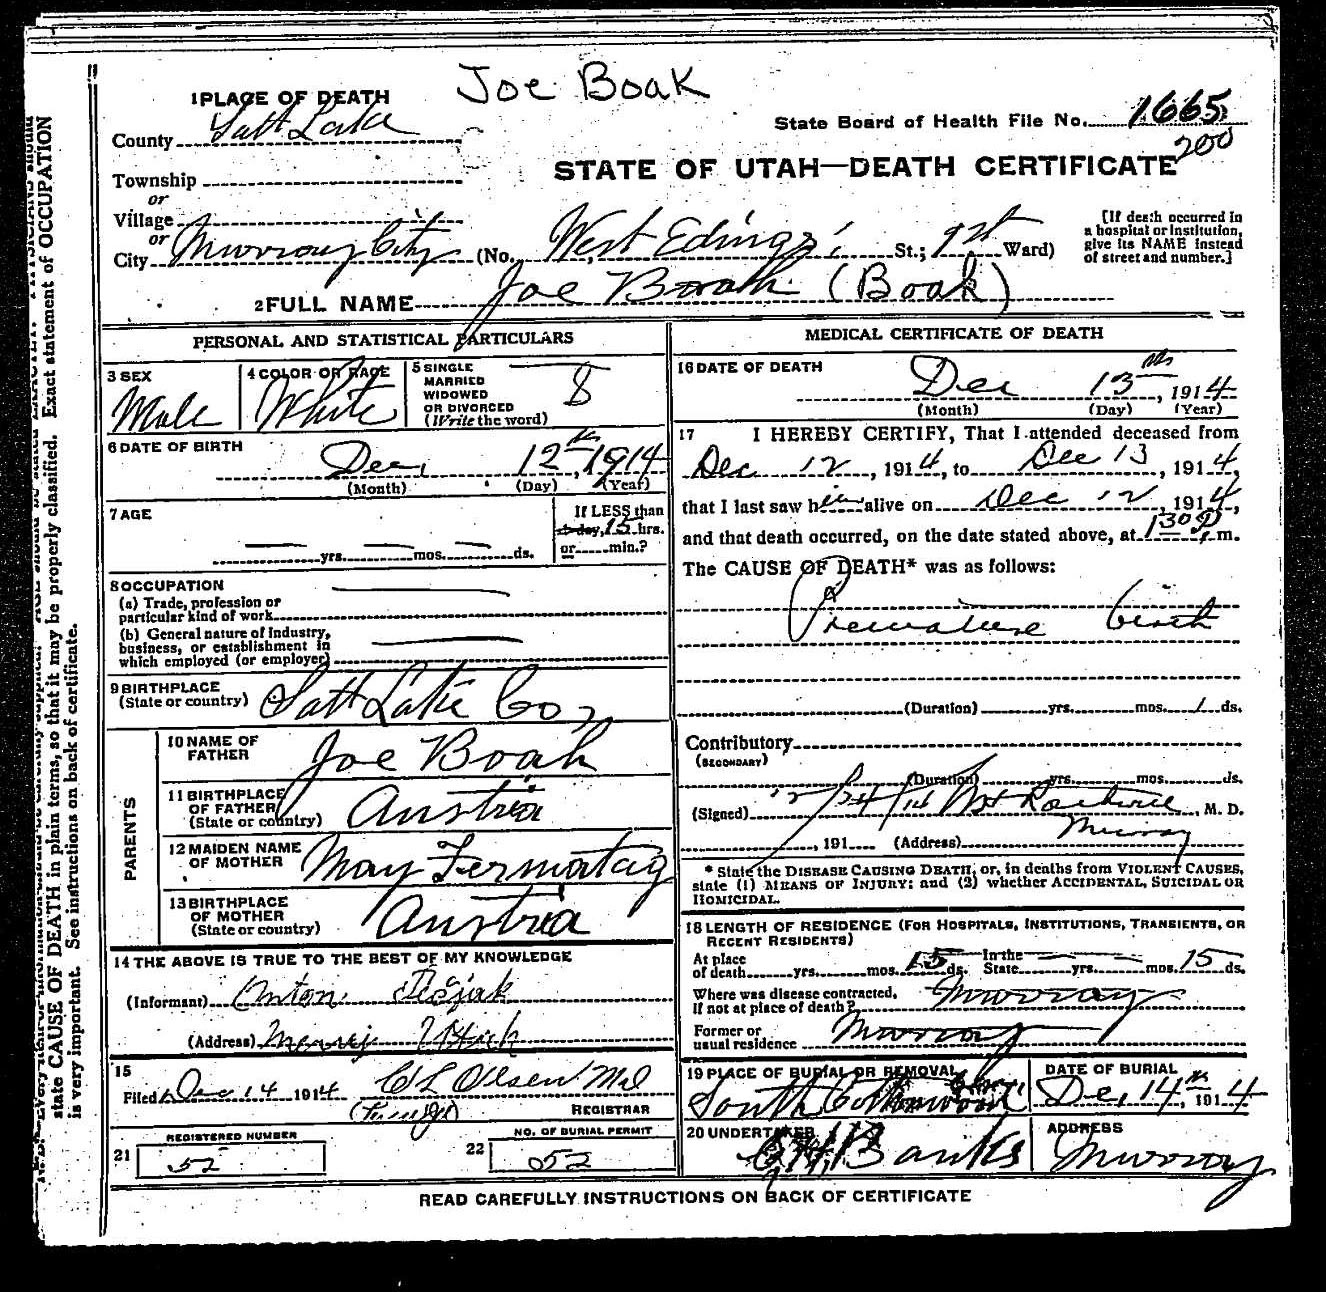 Joe Boak
1 PLACE OF DEATH
County Salt Lake
State Board of Health File No. 1665
200
STATE OF UTAH—DEATH CERTIFICATE
Township
or
Village
or
City Murray City (No. West St.; 1st Ward)
[If death occurred in a hospital or institution, give its NAME instead of street and number.]
2 FULL NAME Joe Boah (Boak)
PERSONAL AND STATISTICAL PARTICULARS
3 SEX
Male
4 COLOR OR RACE
White
5 SINGLE
MARRIED
WIDOWED
OR DIVORCED
(Write the word)
S
6 DATE OF BIRTH
Dec, 12th, 1914
(Month) (Day) (Year)
7 AGE
yrs. mos. ds.
If LESS than
1 day, 15 hrs.
or min.?
8 OCCUPATION
(a) Trade, profession or
particular kind of work
(b) General nature of Industry,
business, or establishment in
which employed (or employer)
9 BIRTHPLACE
(State or country) Salt Lake Co
PARENTS
10 NAME OF
FATHER Joe Boah
11 BIRTHPLACE
OF FATHER
(State or country) Austria
12 MAIDEN NAME
OF MOTHER May
13 BIRTHPLACE
OF MOTHER
(State or country) Austria
14 THE ABOVE IS TRUE TO THE BEST OF MY KNOWLEDGE
(Informant) Anton
(Address)
15
Filed Dec 14 1914 C L Olsen Md
REGISTRAR
REGISTERED NUMBER
21 52
NO. OF BURIAL PERMIT
22 052
MEDICAL CERTIFICATE OF DEATH
16 DATE OF DEATH
Dec 13th, 1914
(Month) (Day) (Year)
17 I HEREBY CERTIFY, That I attended deceased from
Dec 12, 1914, to Dec 13, 1914,
that I last saw him alive on Dec 12, 1914,
and that death occurred, on the date stated above, at 130 P. m.
The CAUSE OF DEATH* was as follows:
Premature birth
(Duration) yrs. mos. 1 ds.
Contributory
(SECONDARY)
(Duration) yrs. mos. ds.
(Signed) M. D.
, 191 (Address) Murray
* State the DISEASE CAUSING DEATH, or, in deaths from VIOLENT CAUSES,
state (1) MEANS OF INJURY; and (2) whether ACCIDENTAL, SUICIDAL OR
HOMICIDAL.
18 LENGTH OF RESIDENCE (FOR HOSPITALS, INSTITUTIONS, TRANSIENTS, OR
RECENT RESIDENTS)
At place In the
of death yrs. mos. 15 ds. State yrs. mos. 15 ds.
Where was disease contracted,
if not at place of death? Murray
Former or
usual residence Murray
19 PLACE OF BURIAL OR REMOVAL
South Cottonwood
DATE OF BURIAL
Dec, 14th, 1914
20 UNDERTAKER
Banks
ADDRESS
Murray
READ CAREFULLY INSTRUCTIONS ON BACK OF CERTIFICATE
state CAUSE OF DEATH in plain terms, so that it may be properly classified. Exact statement of OCCUPATION
is very important. See instructions on back of certificate.